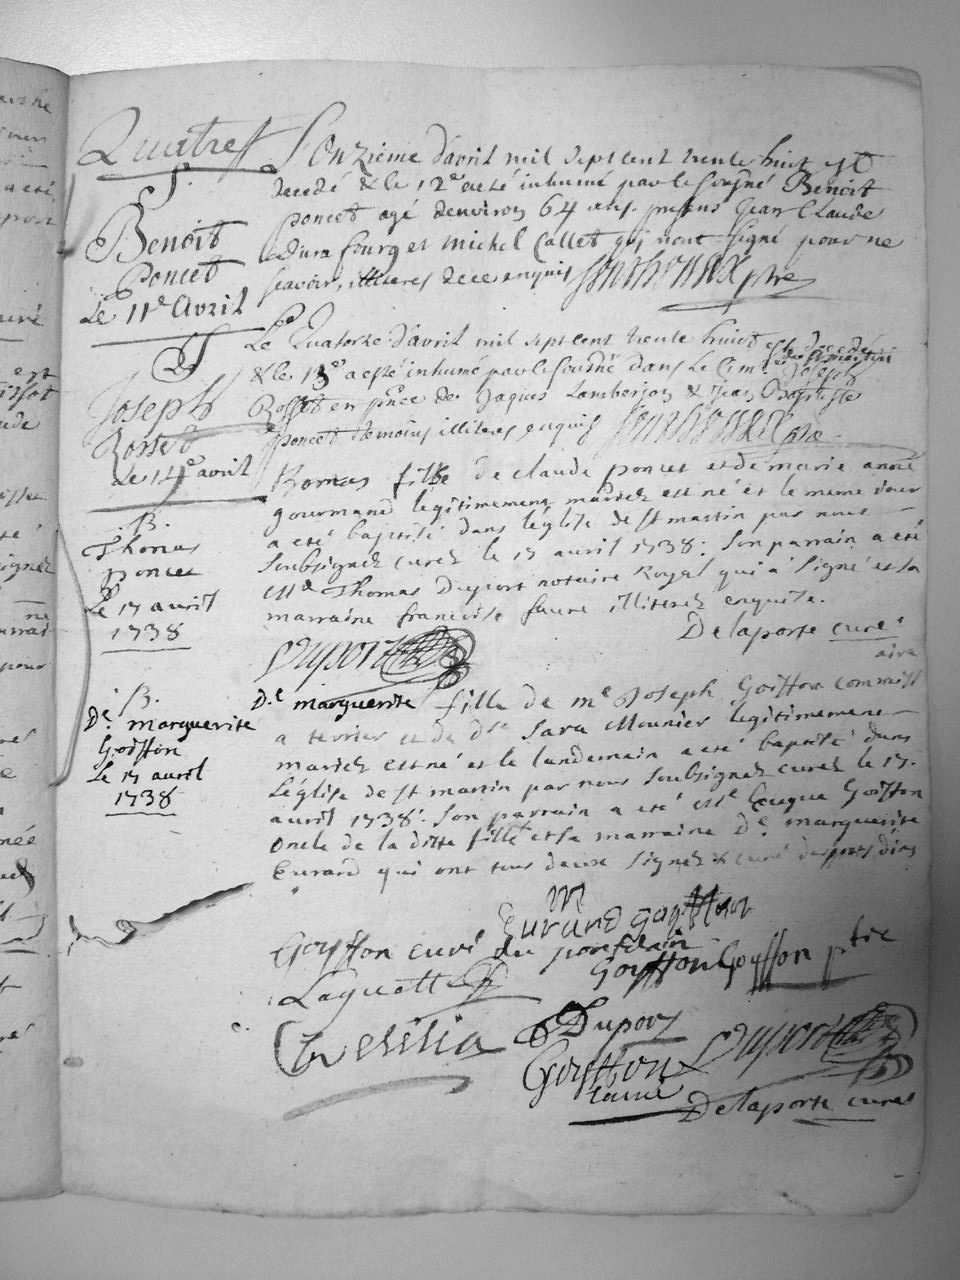 Quatre
S.
Benoit
Poncet
Le 11e Avril
L'Onzieme d'avril mil sept cent trente huit est
decedé & le 12e a eté inhumé par le sousné Benoit
poncet agé denviron 64 ans. presens Jean Claude
Dura fourg et Michel Callet qui n'ont signé pour ne
scavoir, illiteres de ce enquis
ptre
S
Joseph
Rosset
Le 14e avril
Le Quatorze d'avril mil sept cent trente huit est decedé
& le 15e a esté inhumé par le sousné dans le Cim. de st martin Joseph
Rosset en pnce de Jaques Lamberjon & Jean Baptiste
poncet temoins illiteres enquis
ptre
B.
Thomas
poncet
Le 17 avril
1738
Thomas fils de claude poncet et de marie anne
gourmand legitimement mariez est né et le meme jour
a eté baptisé dans l'église de st martin par nous
soubsignez curez le 17 avril 1738. Son parrain a eté
Me Thomas Duport notaire Royal qui a signé et la
marraine francoise faure illiterez enquise.
Delaporte curé
Duport
B.
De. marguerite
Goiffon
Le 17 avril
1738
De marguerite fille de me Joseph Goiffon commissaire
a terrier et de de Sara Mounier legitimement
mariez est né et le lendemain a eté baptisé dans
L'église de st martin par nous soubsignez curez le 17.
avril 1738. Son parrain a eté Goiffon
Oncle de la ditte fille et sa marraine De marguerite
Evrard qui ont tous deux signez & curé
m
Evrard goyffon
Goyffon curé du
Goyffon Goyffon ptre
Laguette
Duport Duport
Goyffon
Delaporte curez